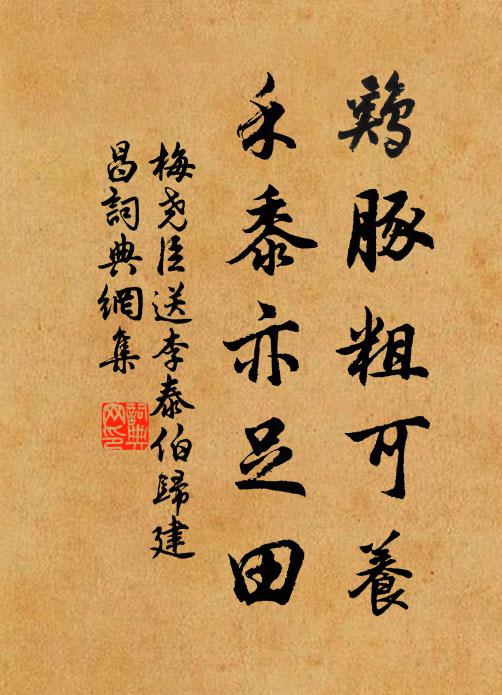 鷄豚粗可養
禾黍亦足田
梅堯臣送李泰伯歸建
昌詞典網集
詞典
網印